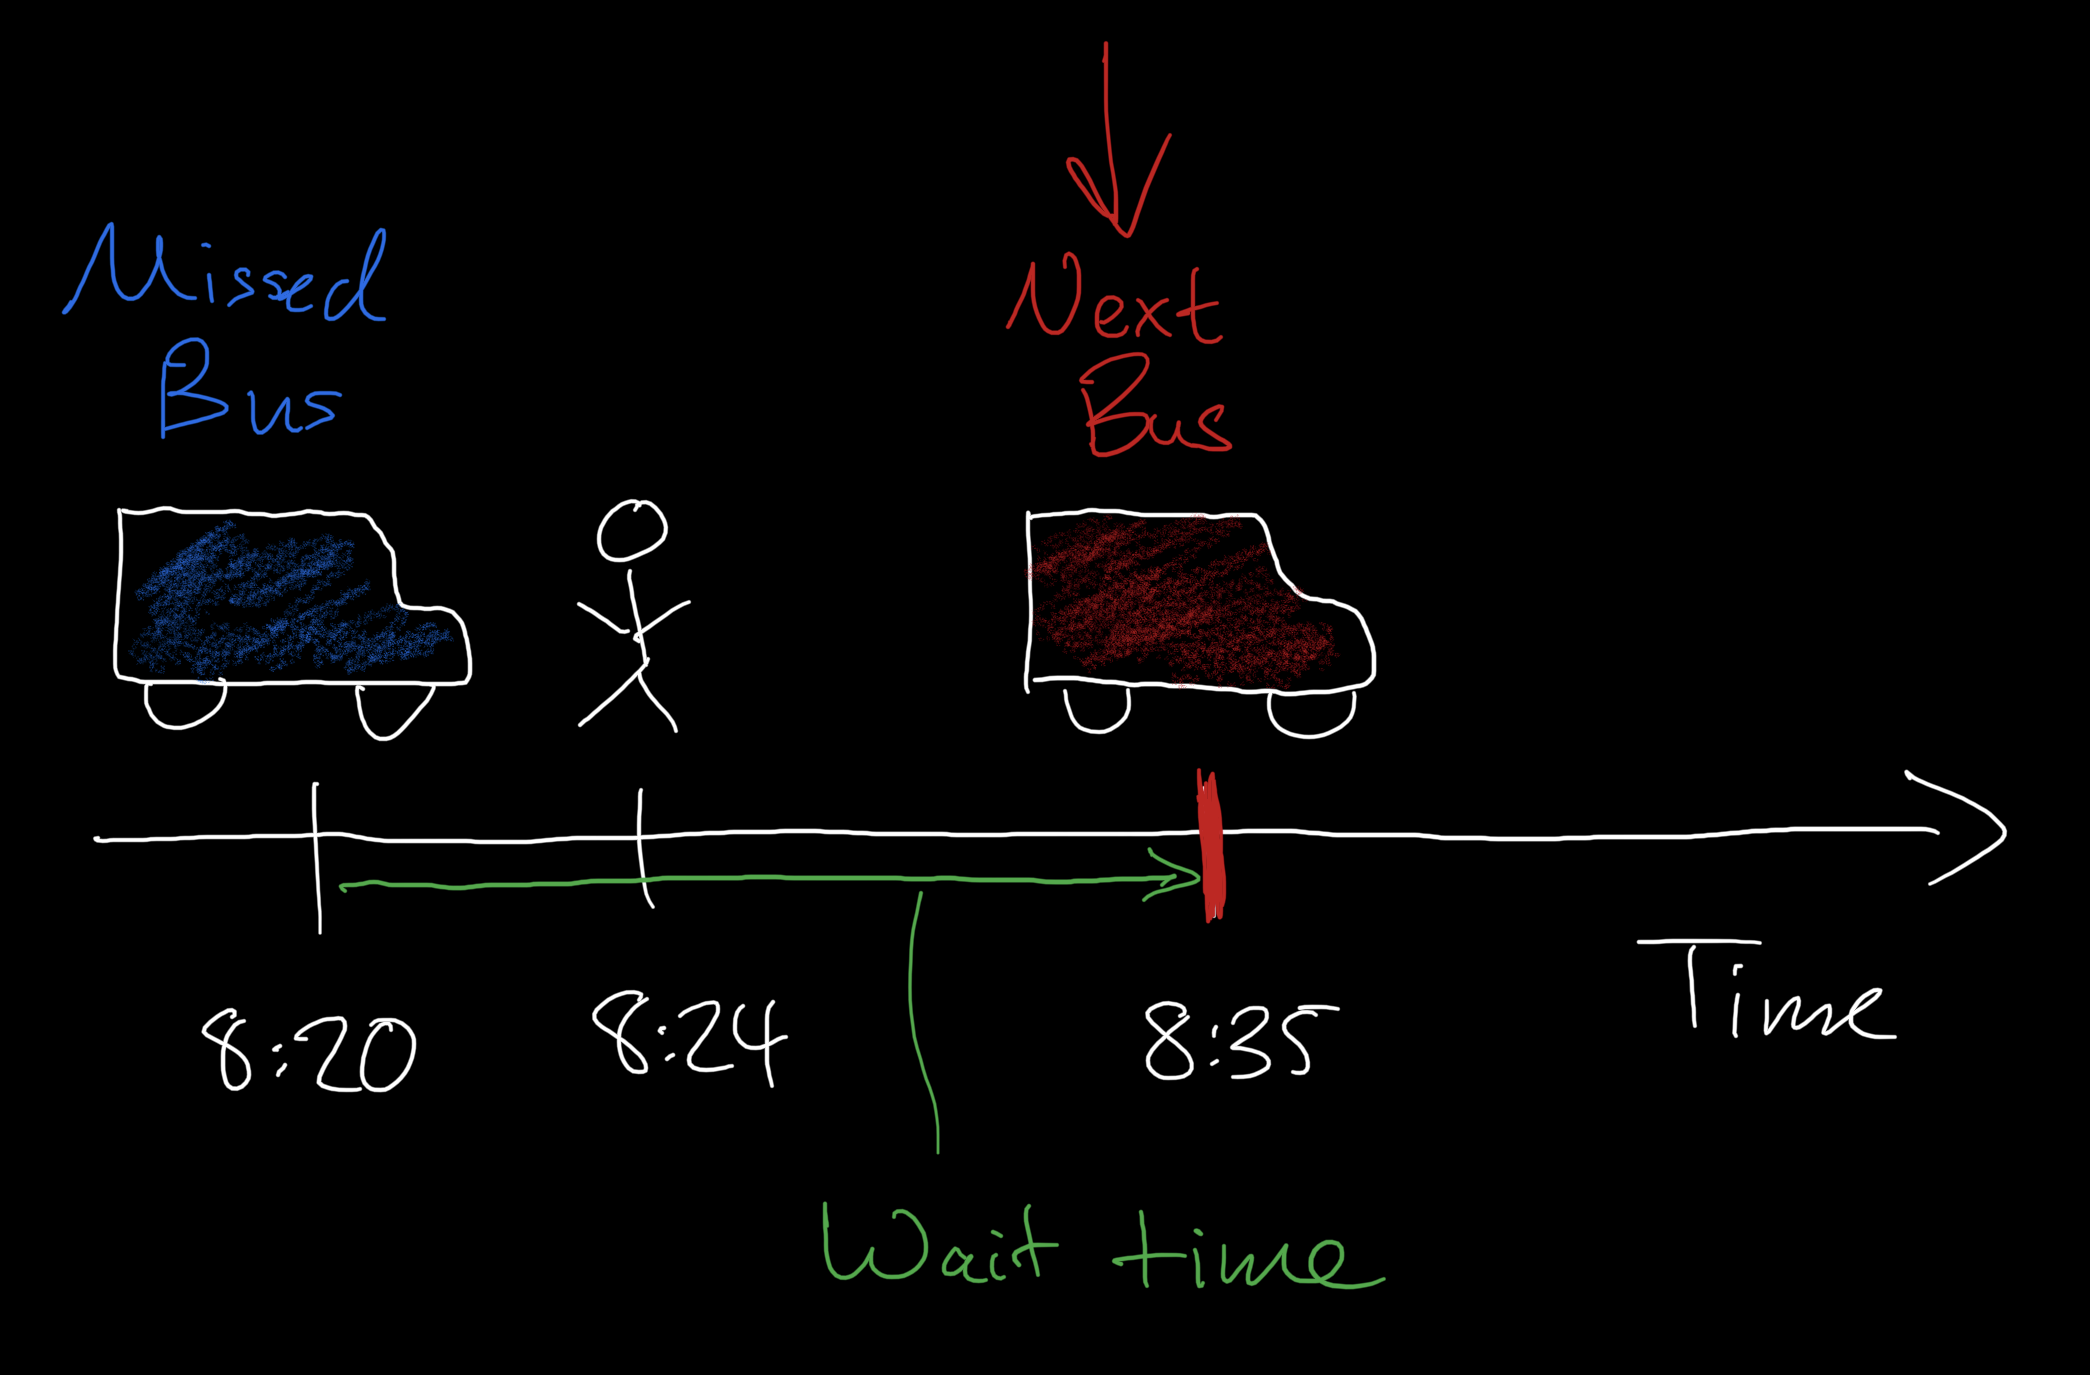 Missed
Bus
Next
Bus
8:20
8:24
8:35
Time
Wait time